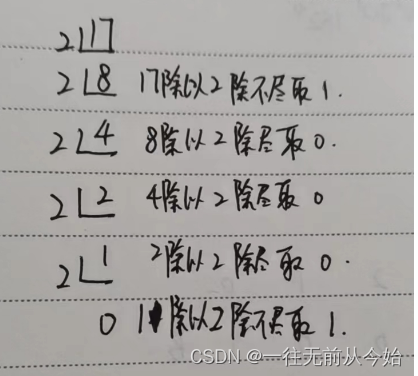 2 17
2 8 17除以2除不尽取1.
2 4 8除以2除尽取0.
2 2 4除以2除尽取0
2 1 2除以2除尽取0.
0 1除以2除不尽取1.
CSDN @一往无前从今始